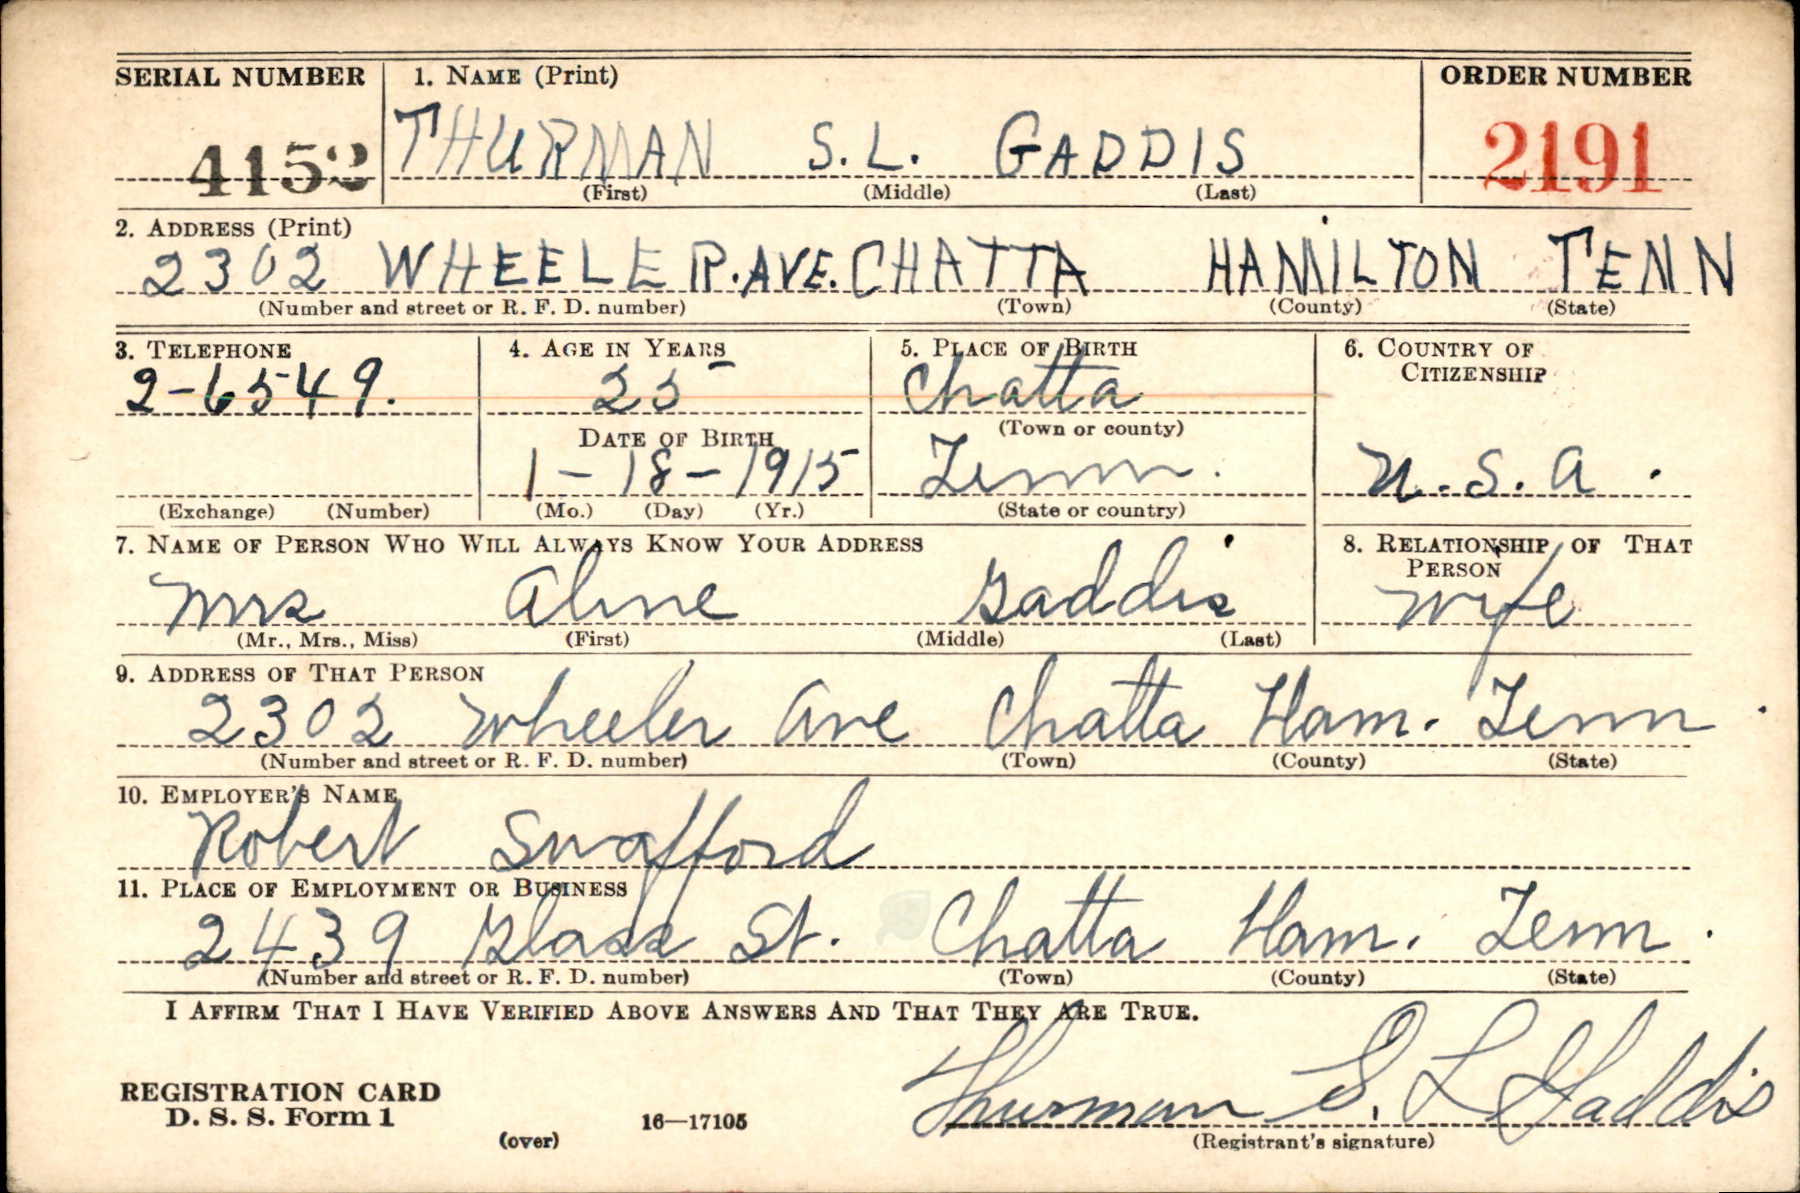 SERIAL NUMBER 1. NAME (Print) ORDER NUMBER
4152 THURMAN S. L. GADDIS 2191
(First) (Middle) (Last)
2. ADDRESS (Print)
2302 WHEELER. AVE. CHATTA HAMILTON TENN
(Number and street or R. F. D. number) (Town) (County) (State)
3. TELEPHONE 4. AGE IN YEARS 5. PLACE OF BIRTH 6. COUNTRY OF CITIZENSHIP
2-6549. 25 Chatta
DATE OF BIRTH (Town or county)
1-18-1915 Tenn. U.S.A.
(Exchange) (Number) (Mo.) (Day) (Yr.) (State or country)
7. NAME OF PERSON WHO WILL ALWAYS KNOW YOUR ADDRESS 8. RELATIONSHIP OF THAT PERSON
Mrs Aline Gaddis Wife
(Mr., Mrs., Miss) (First) (Middle) (Last)
9. ADDRESS OF THAT PERSON
2302 Wheeler Ave Chatta Ham. Tenn.
(Number and street or R. F. D. number) (Town) (County) (State)
10. EMPLOYER'S NAME
Robert Swafford
11. PLACE OF EMPLOYMENT OR BUSINESS
2439 Glass St. Chatta Ham. Tenn.
(Number and street or R. F. D. number) (Town) (County) (State)
I AFFIRM THAT I HAVE VERIFIED ABOVE ANSWERS AND THAT THEY ARE TRUE.
REGISTRATION CARD
D. S. S. Form 1 16—17105 Thurman S. L Gaddis
(over) (Registrant's signature)